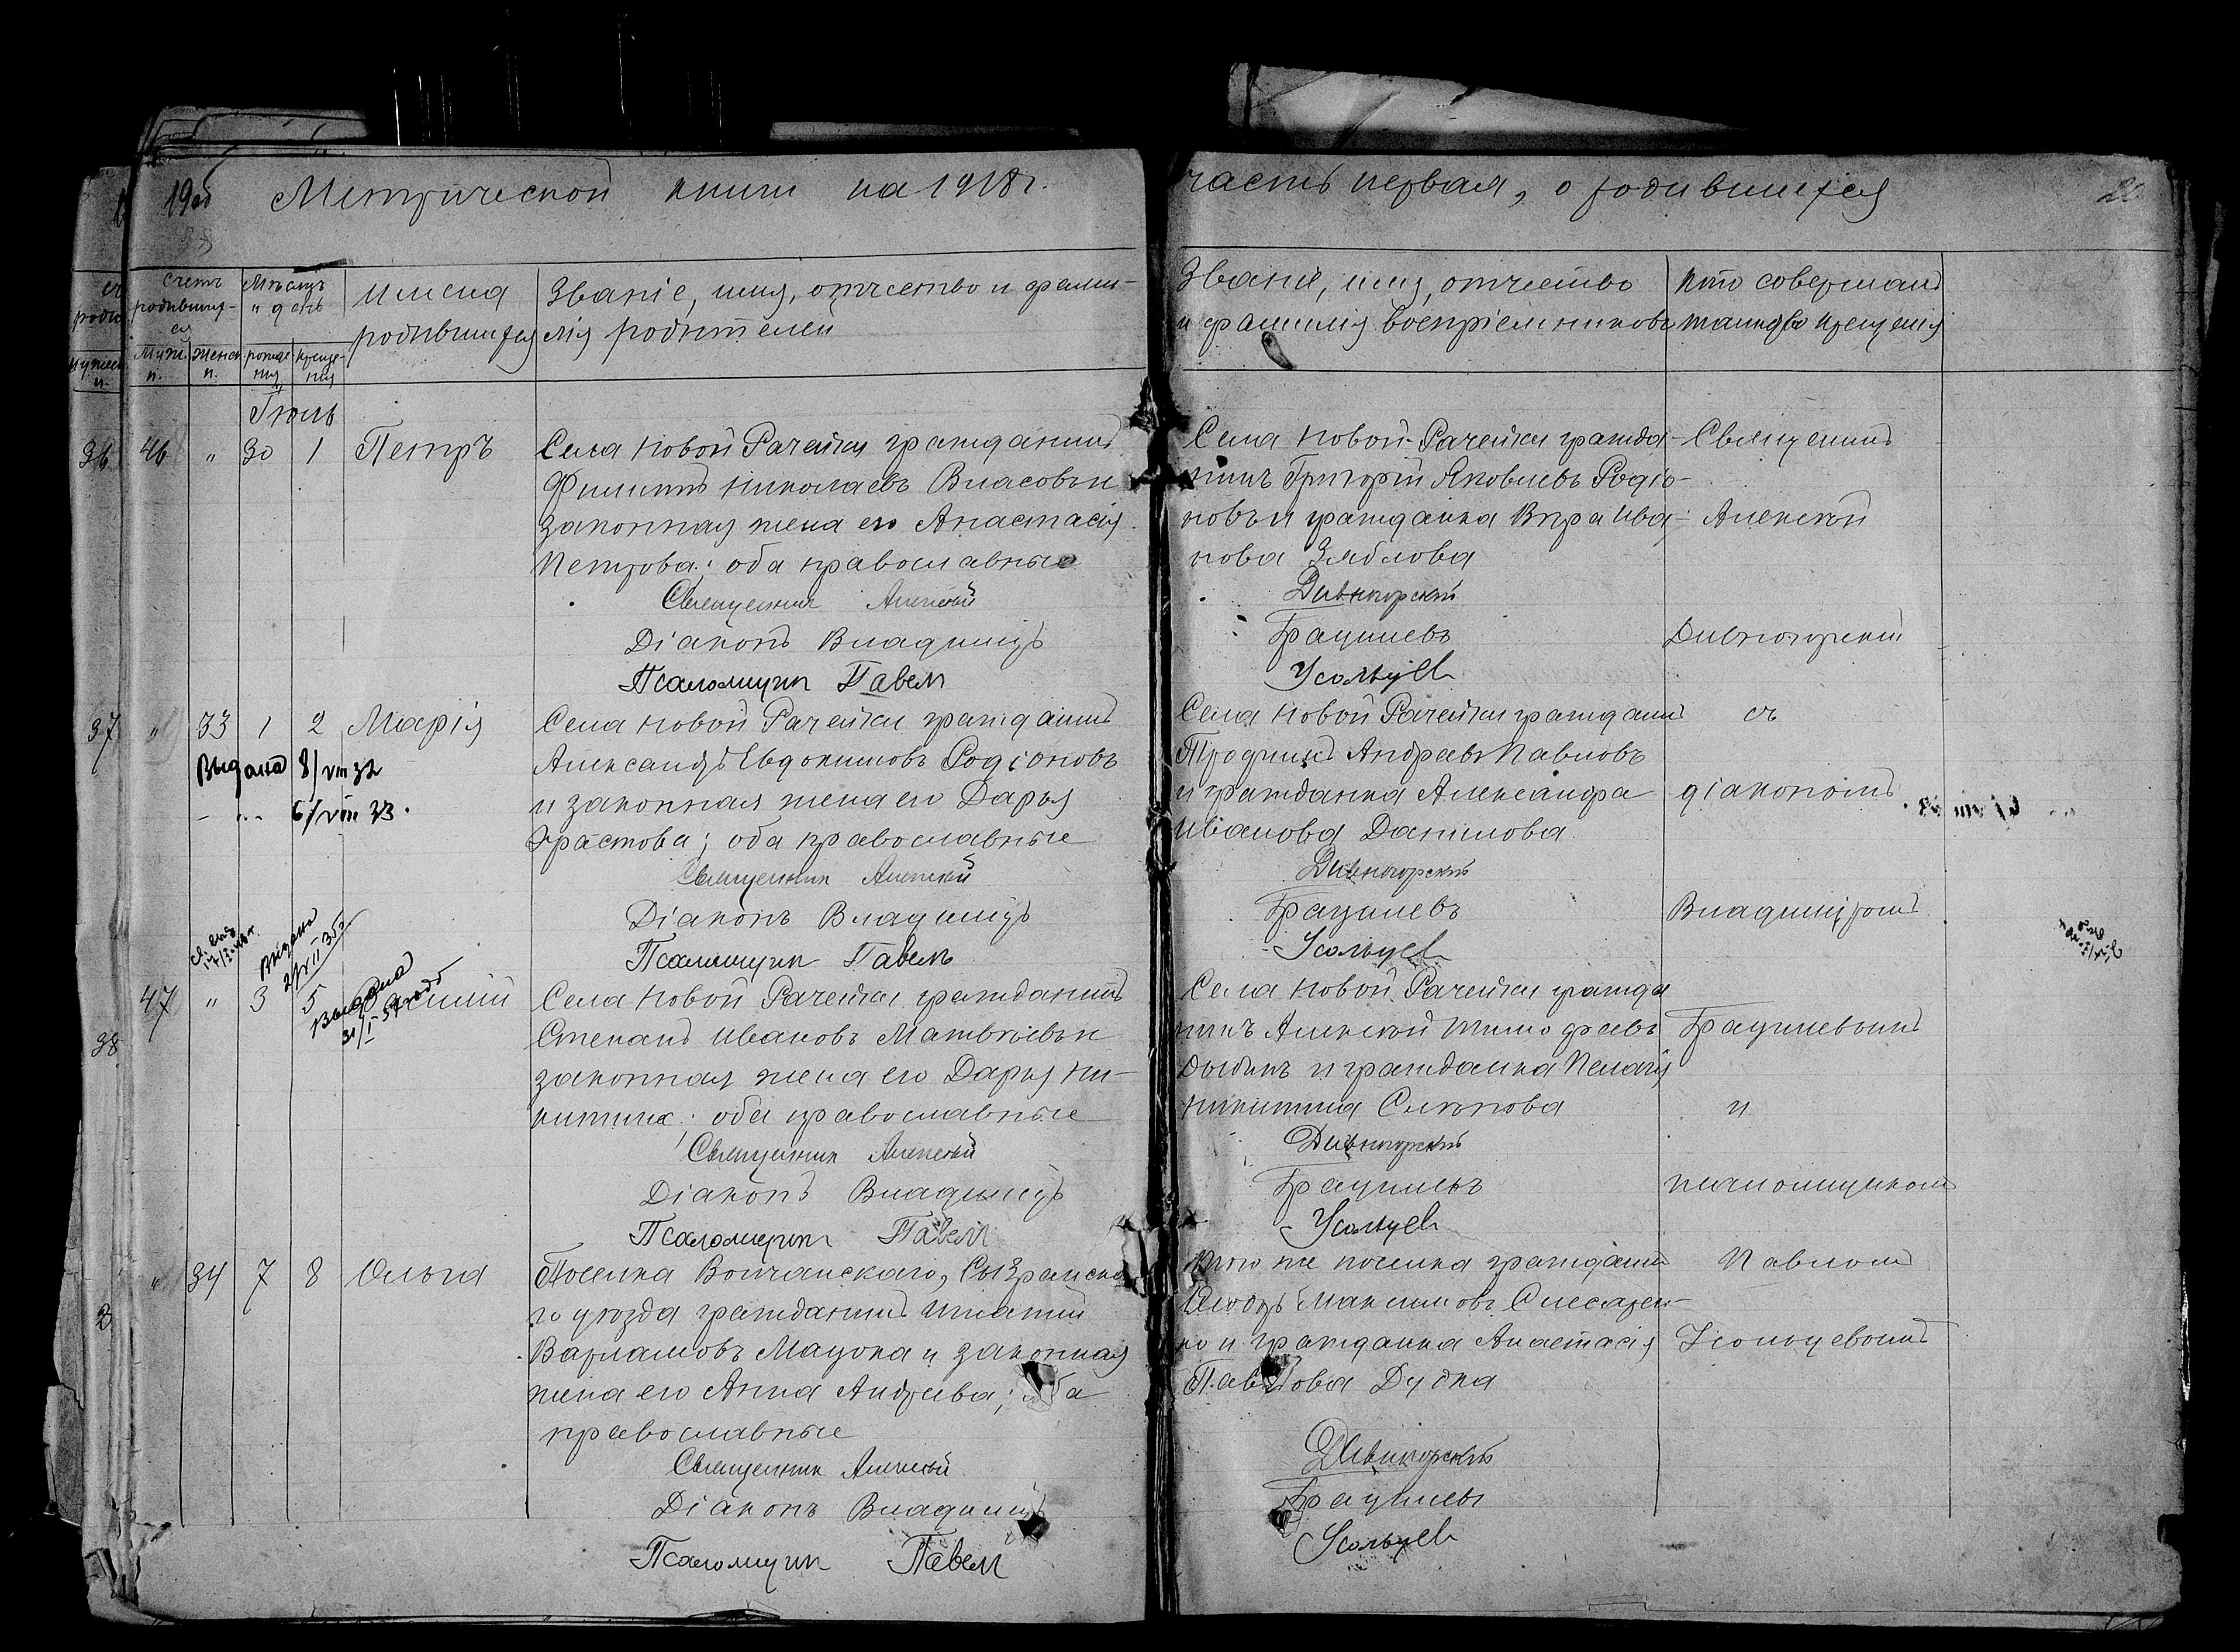 Метрической книги на 1918 г.
часть первая, о родившихся
20
Счетъ родившихся
Мѣсяцъ и день
Имена родившихся
Званіе, имя, отчество и фамилія родителей
Званіе, имя, отчество
и фамилія воспріемниковъ
Кто совершалъ
таинство крещенія
Муж. п.
Женск. п.
рожденія
крещенія
Іюль
46 " 30 1 Петръ
Села Новой Рачейки гражданинъ
Филиппъ Николаевъ Власовъ и
законная жена его Анастасія
Петрова; оба православные
Священникъ Алексѣй
Діаконъ Владиміръ
Псаломщикъ Павелъ
Села Новой Рачейки гражда-
нинъ Григорій Яковлевъ Родіо-
новъ и гражданка Вѣра Ива-
нова Зяблова
Дивногорскій
Усольцевъ
Священникъ
Алексѣй
Дивногорскій
37
" 33 1 2 Марія
Выдана 8/VIII 32
- " - 6/VIII 33.
Села Новой Рачейки гражданинъ
Александръ Евдокимовъ Родіоновъ
и законная жена его Дарья
Эрастова; оба православные
Священникъ Алексѣй
Діаконъ Владиміръ
Псаломщикъ Павелъ
Села Новой Рачейки гражданинъ
Трофимъ Андреевъ Павловъ
и гражданка Александра
Иванова Данилова.
Дивногорскій
Усольцевъ
съ
діакономъ
Владиміромъ
47 " 3 5
Выдано
Выдана
38
Села Новой Рачейки гражданинъ
Степанъ Ивановъ Матвѣевъ и
законная жена его Дарья Ни-
китина; оба православные
Священникъ Алексѣй
Діаконъ Владиміръ
Псаломщикъ Павелъ
Села Новой Рачейки гражда
нинъ Алексѣй Тимофеевъ
и гражданка Пелагія
Никитина
Дивногорскій
Усольцевъ
и
псаломщикомъ
" 34 7 8 Ольга
Поселка Волчанскаго, Сызранска-
го уѣзда гражданинъ Игнатій
Варламовъ Мацока и законная
жена его Анна Андреева; оба
православные
Священникъ Алексѣй
Діаконъ Владиміръ
Псаломщикъ Павелъ
Того же поселка гражданинъ
Максимовъ Слесарен-
ко и гражданка Анастасія
Павлова Дудка
Дивногорскій
Усольцевъ
Павломъ
Усольцевымъ